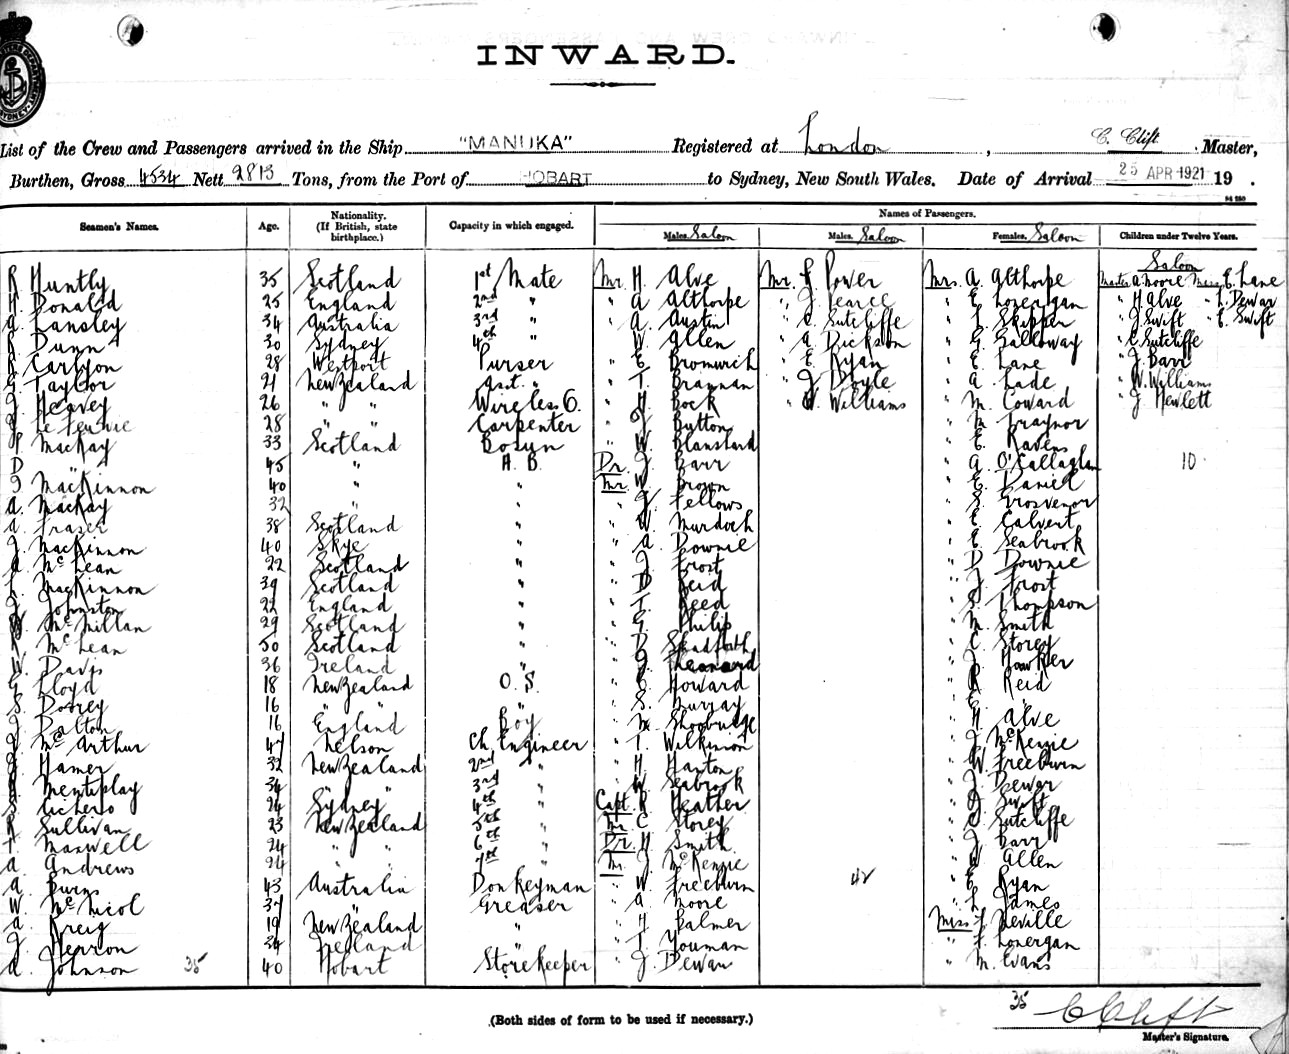 INWARD.
List of the Crew and Passengers arrived in the Ship "MANUKA" Registered at London, C. Clift Master,
Burthen, Gross 4534 Nett 2813 Tons, from the Port of HOBART to Sydney, New South Wales. Date of Arrival 25 APR 1921 19 .
Names of Passengers.
Seamen's Names. Age. Nationality. (If British, state birthplace.) Capacity in which engaged. Males. Saloon Males. Saloon Females. Saloon Children under Twelve Years.
Saloon
R Huntly 35 Scotland 1st Mate Mr. H. Alve Mr. F. Power Mrs. A. Althorpe Master A. Moore Miss E. Lane
H Donald 25 England 2nd " " A Althorpe " J. Pearce " E. Lonergan " H Alve " L. Dewar
A. Langley 34 Australia 3rd " " A. Austin " C. Sutcliffe " L. Skipper " J. Swift " E. Swift
R Dunn 30 Sydney 4th " " W. Allen " A Dickson " G. Galloway " C. Sutcliffe
R Carlyon 28 Westport Purser " E. Bromwich " E. Ryan " E. Lane " J. Barr
G Taylor 21 New Zealand Asst. " " T. Brannan " J Doyle " A. Lade " W. Williams
J. Heavey 26 " " Wireless O. " H Bock " W Williams " M. Coward " J. Hewlett
28 " Carpenter " J Button " M. Traynor
P. Mackay 33 Scotland Bosun " W. Blanshard " E. Ravens
D " 45 " A. B. Dr. J. Barr " A. O'Callaghan 10
J MacKinnon 40 " " Mr W. Brown " E. Daniel
A. Mackay 32 " " " J Fellows " S Grosvenor
A Fraser 38 Scotland " " W. Murdoch " E. Calvert
J. MacKinnon 40 Skye " " A. Downie " E. Seabrook
A McLean 22 Scotland " " J. Frost " D Downie
L. MacKinnon 39 Scotland " " D Reid " J. Frost
J Johnston 22 England " " T. Reed " S. Thompson
McMillan 29 Scotland " " G. Philip " M. Smith
McLean 50 Scotland " " D Shadforth " C Storey
W. Davis 36 Ireland " " J. Leonard " J. Hawker
G. Lloyd 18 New Zealand O. S. " C. Howard " R Reid
S. Doorey 16 " " " S. Murray " E. "
J Dalton 16 England Boy " M Shoobridge " H Alve
J. McArthur 47 Nelson Ch. Engineer " T. Wilkinson " J McKenzie
J Hamer 32 New Zealand 2nd " " H Haxton " W Freeburn
Mentiplay 34 " 3rd " " W Seabrook " J Dewar
24 Sydney 4th " Capt. R Heather " J Swift
R Sullivan 23 New Zealand 5th " Mr C Storey " C Sutcliffe
T Maxwell 24 " " 6th " Dr. H Smith " J Barr
A. Andrews 24 " " 7th " Mr. J. McKenzie " W Allen
A Owens 43 Australia Donkeyman " W. Freeburn 42 " E. Ryan
W. McNicol 37 " Greaser " A Moore " L. James
A. Kreig 19 New Zealand " " H Palmer Miss F Neville
J. Herron 34 Ireland " " T. Youman " F Lonergan
A. Johnson 35 40 Hobart Storekeeper " J. Dewar " M. Evans
35 C Clift
(Both sides of form to be used if necessary.)
Master's Signature.